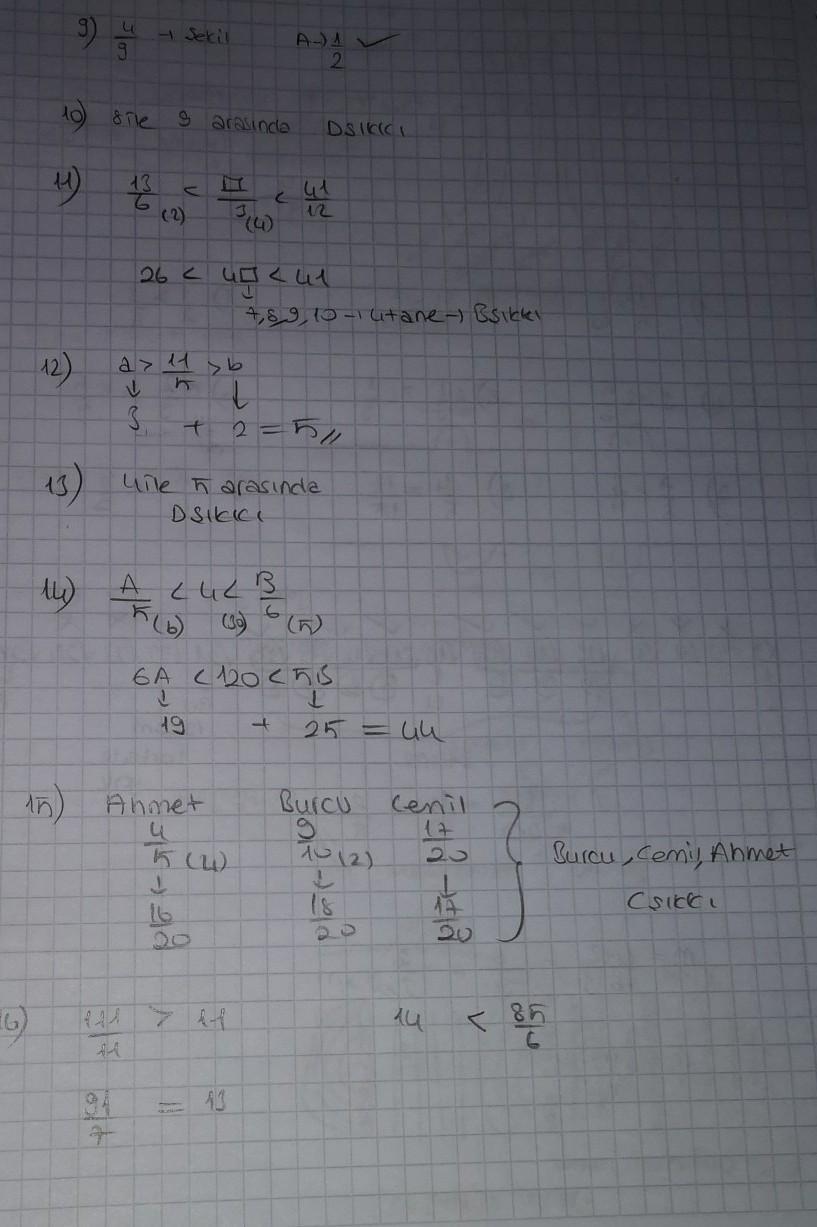 9) 4/9 → Şekil A→ 1/2 ✓
10) 8 ile 9 arasında D şıkkı
11) 13/6 (2) < □/3 (4) < 41/12
26 < 4□ < 41
↓
7,8,9,10 → 4 tane → B şıkkı
12) a > 11/5 > b
↓ ↓
3 + 2 = 5//
13) 4 ile 5 arasında
D şıkkı
14) A/5 (6) < 4 (30) < B/6 (5)
6A < 120 < 5B
↓ ↓
19 + 25 = 44
15) Ahmet Burcu Cemil
4/5 (4) 9/10 (2) 17/20
↓ ↓ ↓
16/20 18/20 17/20
Burcu, Cemil, Ahmet
C şıkkı
16) 111/11 > 11 14 < 85/6
91/7 = 13